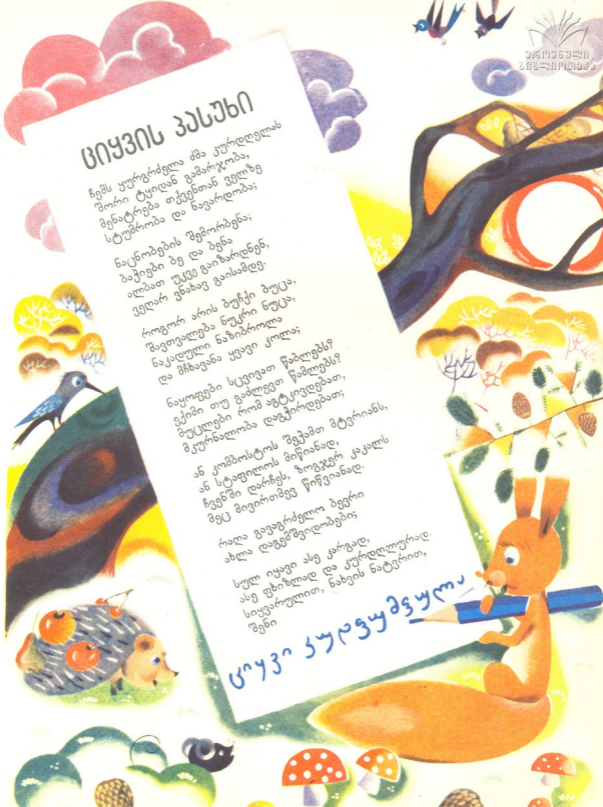 ეროვნული
ბიბლიოთეკა
ციყვის პასუხი
ჩემს ყურგრძელა ძმა კურდღელას
შორი ტყიდან გამარჯობა,
მენატრება თქვენთან ველზე
სტუმრობა და ნავარდობა;
ნაცნობების შემორბენა;
ბაჭიები ბე და ბენა
ალბათ უკვე გაიზარდნენ,
ველარ ვნახავ გაისამდე.
როგორ არის ბუჩქი ბუცა,
შავთვალება ნუკრი ნუცა,
ნაკადული ნაზიბროლა
და მჩხავანა ყვავი კოლა;
ნაყოფები სცვივათ წაბლებს?
ექიმი თუ გაძლევთ წამლებს?
მუცლები რომ აგტკივდებათ,
მკურნალობა დაგჭირდებათ;
ან კომბოსტოს შეჭამთ მტვრიანს,
ან სტაფილოს მიწიანად,
ჩვენში დარჩეს, ზოგჯერ კაკალს
მეც მივირთმევ წიწვიანად.
რაღა გავაგრძელო ბევრი
ახლა დაგემშვიდობები;
სულ იყავი ასე კარგად,
ასე ფხიზლად და კურდღლურად.
სიყვარულით, ნახვის ნატვრით,
შენი
ციყვი კუდფუმფულა